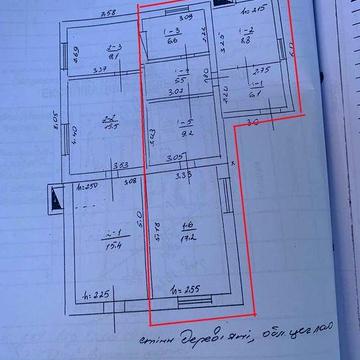 3.58
3.09
h=215
2-3
9.1
1-3
6.6
2.22
1-2
8.8
3.25
2.69
3.37
1-4
5.5
1.80
2.75
1-1
6.1
2.20
3.07
8.05
2-2
15.5
4.40
3.03
1-5
9.2
3.05
3.0
3.53
3.08
3.33
h=250
2-1
15.4
5.0
5.18
1-6
17.2
h=225
h=255
стіни дерев'яні, обл. цеглою